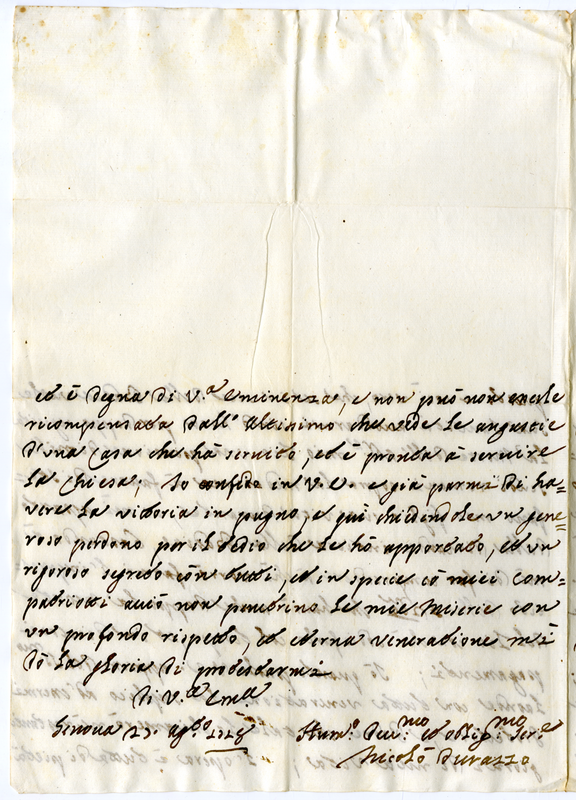 et è degna di V.ª Eminenza, e non può non esserle
ricompensata dall' Altissimo che vide le angustie
d'una Casa che hà servito, et è pronta à servire
la Chiesa; Io confido in V. E. e già parmi di ha=
vere la vittoria in pugno, e qui chiedendole un gene=
roso perdono per il tedio che le hò apportato, et un
rigoroso segreto con tutti, et in specie cò miei Com=
patriotti acciò non penetrino le mie Miserie con
un profondo rispetto, et eterna veneratione mi
dò la gloria di protestarmi
Di V.ª Em.ª
Genova 23. Ag.to
Hum.o Dev.mo et oblig.mo Ser.e
Nicolò Durazzo